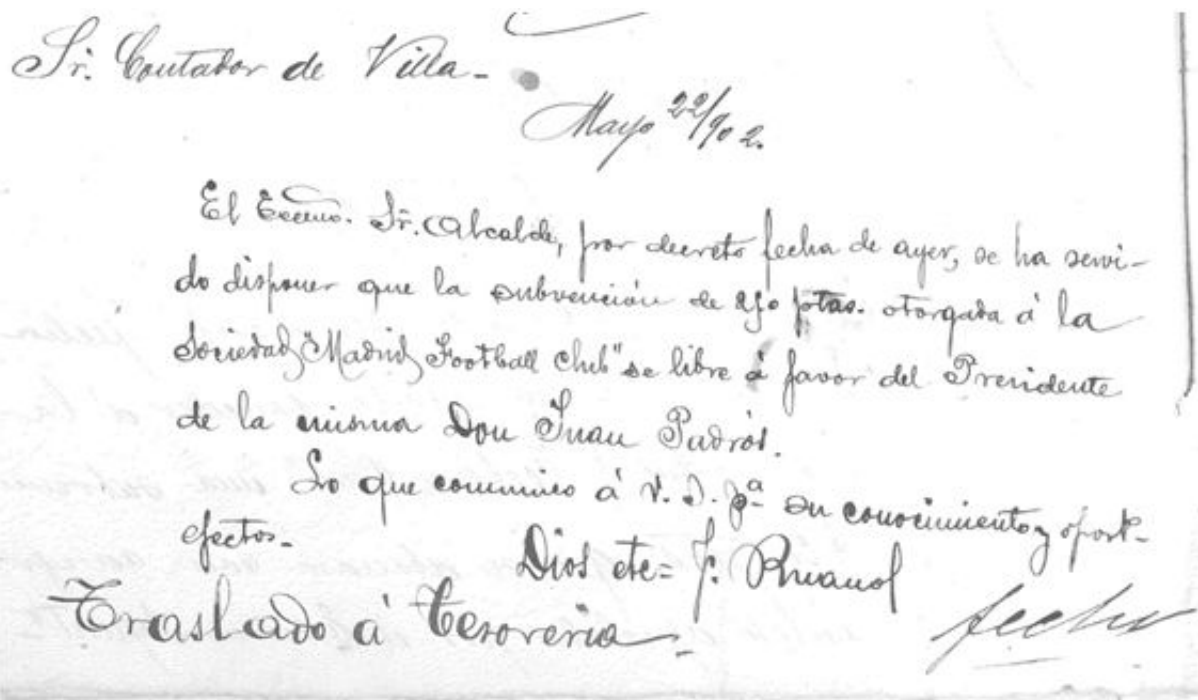 Sr. Contador de Villa-
Mayo 22/902.
El Excmo. Sr. Alcalde, por decreto fecha de ayer, se ha servi-
do disponer que la subvención de 250 ptas. otorgada á la
Sociedad "Madrid Football Club" se libre á favor del Presidente
de la misma Don Juan Padrós.
Lo que comunico á V. S. pª su conocimiento y oport-
efectos-
Dios etc= F. Ruano
Traslado á Tesoreria-
fecho